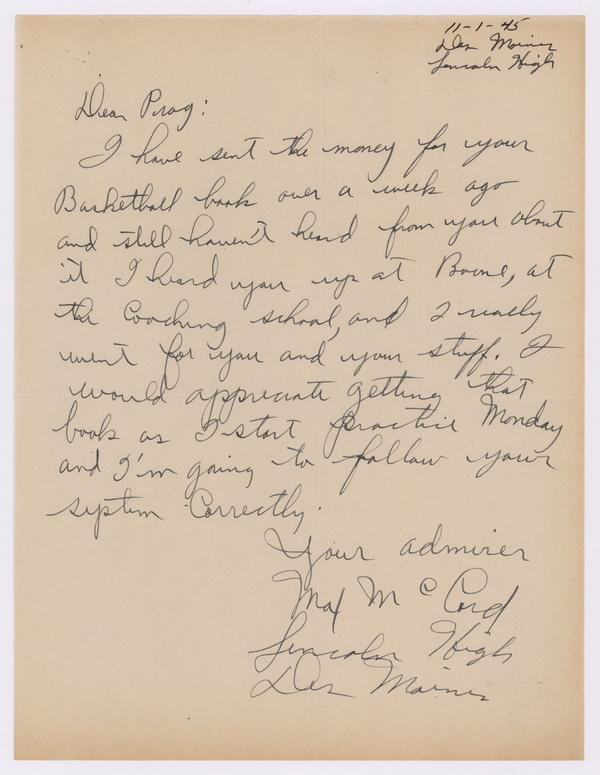 11-1-45
Des Moines
Lincoln High
Dear Prag:
I have sent the money for your
Basketball book over a week ago
and still haven't heard from you about
it I heard you up at Boone, at
the Coaching school, and I really
went for you and your stuff. I
would appreciate getting that
book as I start practice Monday
and I'm going to follow your
system Correctly.
Your admirer
Max McCord
Lincoln High
Des Moines